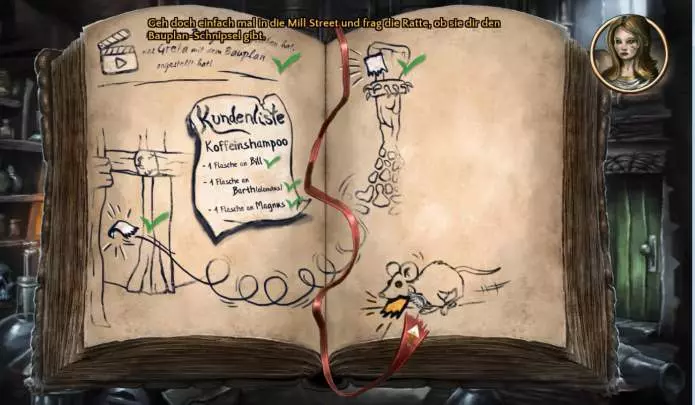 Geh doch einfach mal in die Mill Street und frag die Ratte, ob sie dir den
Bauplan-Schnipsel gibt.
was Greta mit dem Bauplan
angestellt hat!
Kundenliste
Koffeinshampoo
- 1 Flasche an Bill
- 1 Flasche an
Barth(olomäus)
- 1 Flasche an Magnus